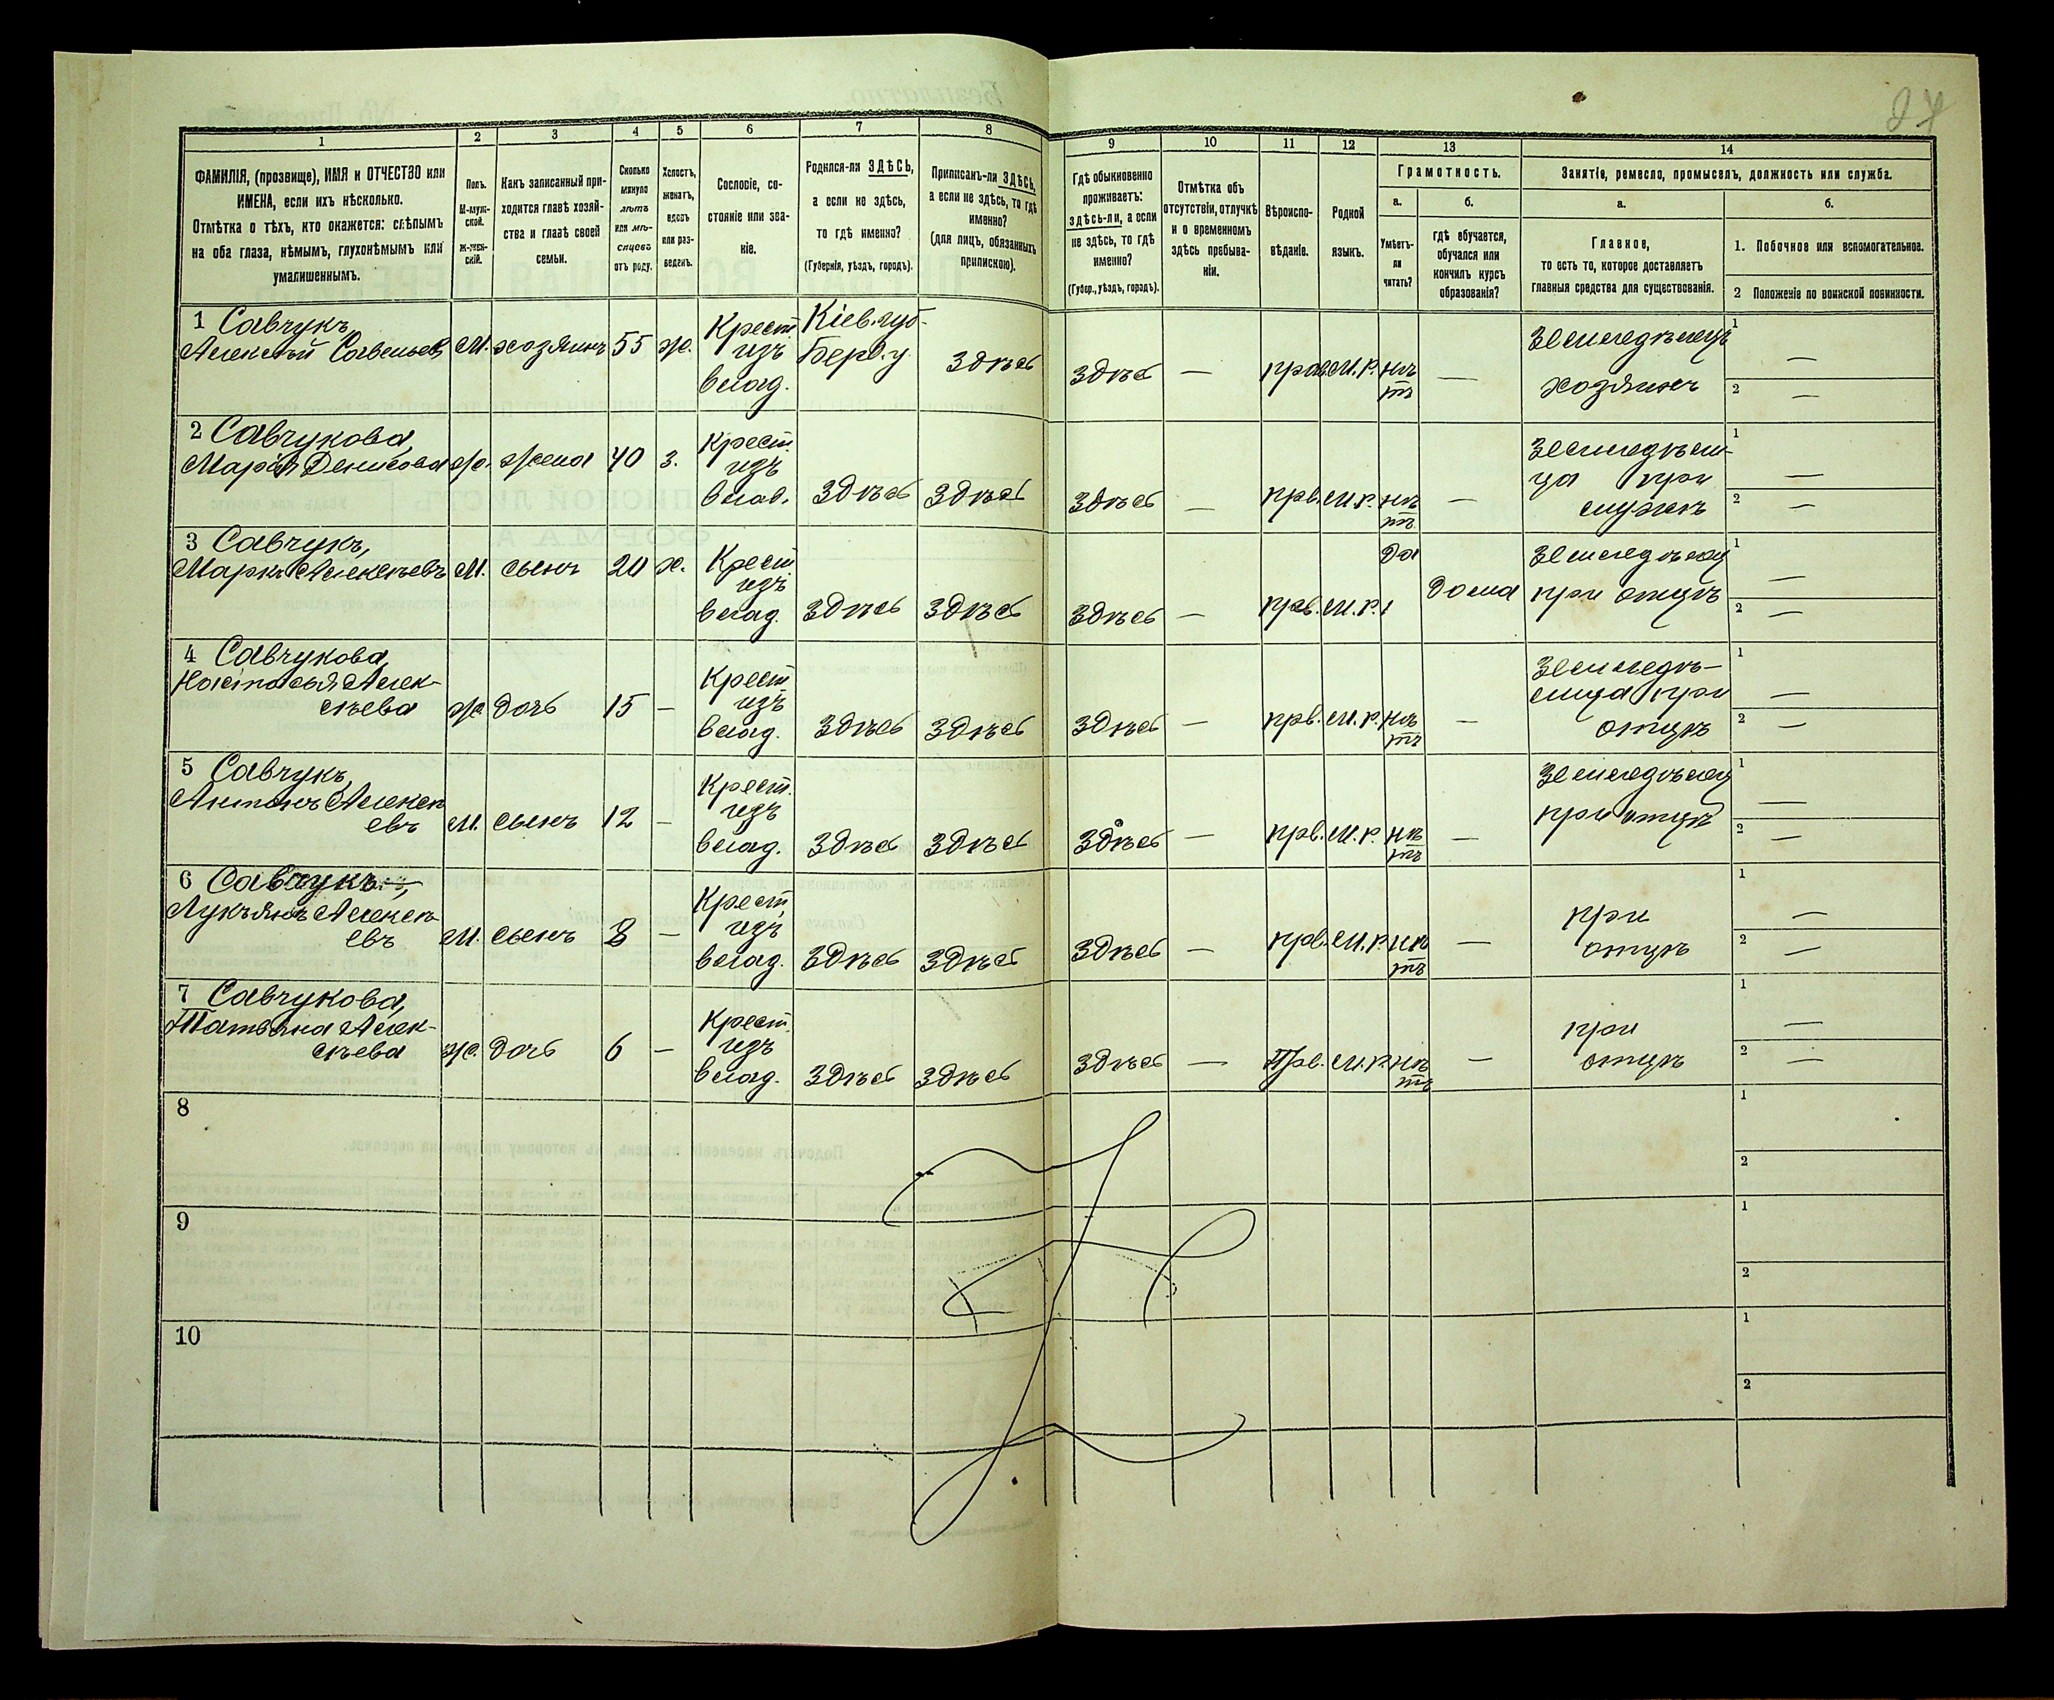 27
1
2
3
4
5
6
7
8
9
10
11
12
13
14
ФАМИЛІЯ, (прозвище), ИМЯ и ОТЧЕСТВО или
ИМЕНА, если ихъ нѣсколько.
Отмѣтка о тѣхъ, кто окажется: слѣпымъ
на оба глаза, нѣмымъ, глухонѣмымъ или
умалишеннымъ.
Полъ.
М-муж-
ской.
Ж-жен-
скій.
Какъ записанный при-
ходится главѣ хозяй-
ства и главѣ своей
семьи.
Сколько
минуло
лѣтъ
или мѣ-
сяцевъ
отъ роду.
Холостъ,
женатъ,
вдовъ
или раз-
веденъ.
Сословіе, со-
стояніе или зва-
ніе.
Родился-ли ЗДѢСЬ,
а если не здѣсь,
то гдѣ именно?
(Губернія, уѣздъ, городъ).
Приписанъ-ли ЗДѢСЬ,
а если не здѣсь, то гдѣ
именно?
(для лицъ, обязанныхъ
припискою).
Гдѣ обыкновенно
проживаетъ:
здѣсь-ли, а если
не здѣсь, то гдѣ
именно?
(Губер., уѣздъ, городъ).
Отмѣтка объ
отсутствіи, отлучкѣ
и о временномъ
здѣсь пребыва-
ніи.
Вѣроиспо-
вѣданіе.
Родной
языкъ.
Грамотность.
а.
Умѣетъ-
ли
читать?
б.
гдѣ обучается,
обучался или
кончилъ курсъ
образованія?
Занятіе, ремесло, промыселъ, должность или служба.
а.
Главное,
то есть то, которое доставляетъ
главныя средства для существованія.
б.
1. Побочное или вспомогательное.
2 Положеніе по воинской повинности.
1 Савчукъ,
Алексѣй Савельевъ М. хозяинъ 55 ж. Крест. изъ влад. Кіев. губ. Берд. у. Здѣсь Здѣсь — прав. м.р. нѣтъ — Земледѣлецъ хозяинъ 1 — 2 —
2 Савчукова,
Марія Денисова ж. жена 40 з. Крест. изъ влад. Здѣсь Здѣсь Здѣсь — прв. м.р. нѣтъ — Земледѣлица при мужѣ 1 — 2 —
3 Савчукъ,
Маркъ Алексѣевъ М. сынъ 20 х. Крест. изъ влад. Здѣсь Здѣсь Здѣсь — прв. м.р. да дома Земледѣлец при отцѣ 1 — 2 —
4 Савчукова,
Настасья Алек-
сѣева ж. дочь 15 — Крест. изъ влад. Здѣсь Здѣсь Здѣсь — прв. м.р. нѣтъ — Земледѣлица при отцѣ 1 — 2 —
5 Савчукъ,
Антонъ Алексѣ
евъ М. сынъ 12 — Крест. изъ влад. Здѣсь Здѣсь Здѣсь — прв. м.р. нѣтъ — Земледѣлец при отцѣ 1 — 2 —
6 Савчукъ,
Лукъянъ Алексѣ-
евъ М. сынъ 8 — Крест. изъ влад. Здѣсь Здѣсь Здѣсь — прв. м.р. нѣтъ — при отцѣ 1 — 2 —
7 Савчукова,
Татьяна Алек-
сѣева ж. дочь 6 — Крест. изъ влад. Здѣсь Здѣсь Здѣсь — Прв. м.р. нѣтъ — при отцѣ 1 — 2 —
8 1 2
9 1 2
10 1 2